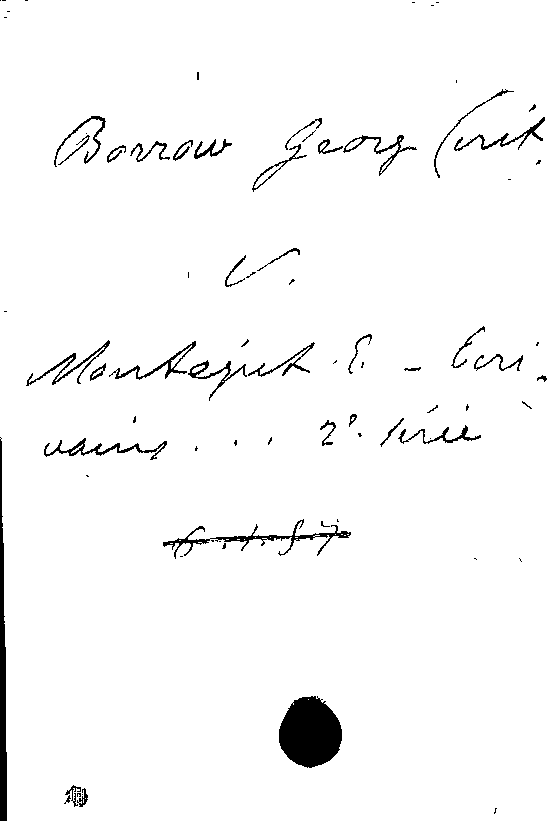 Borrow Georg (crit.
V.
Montégut E. - Ecri-
vains... 2e. série
6.1.8.7